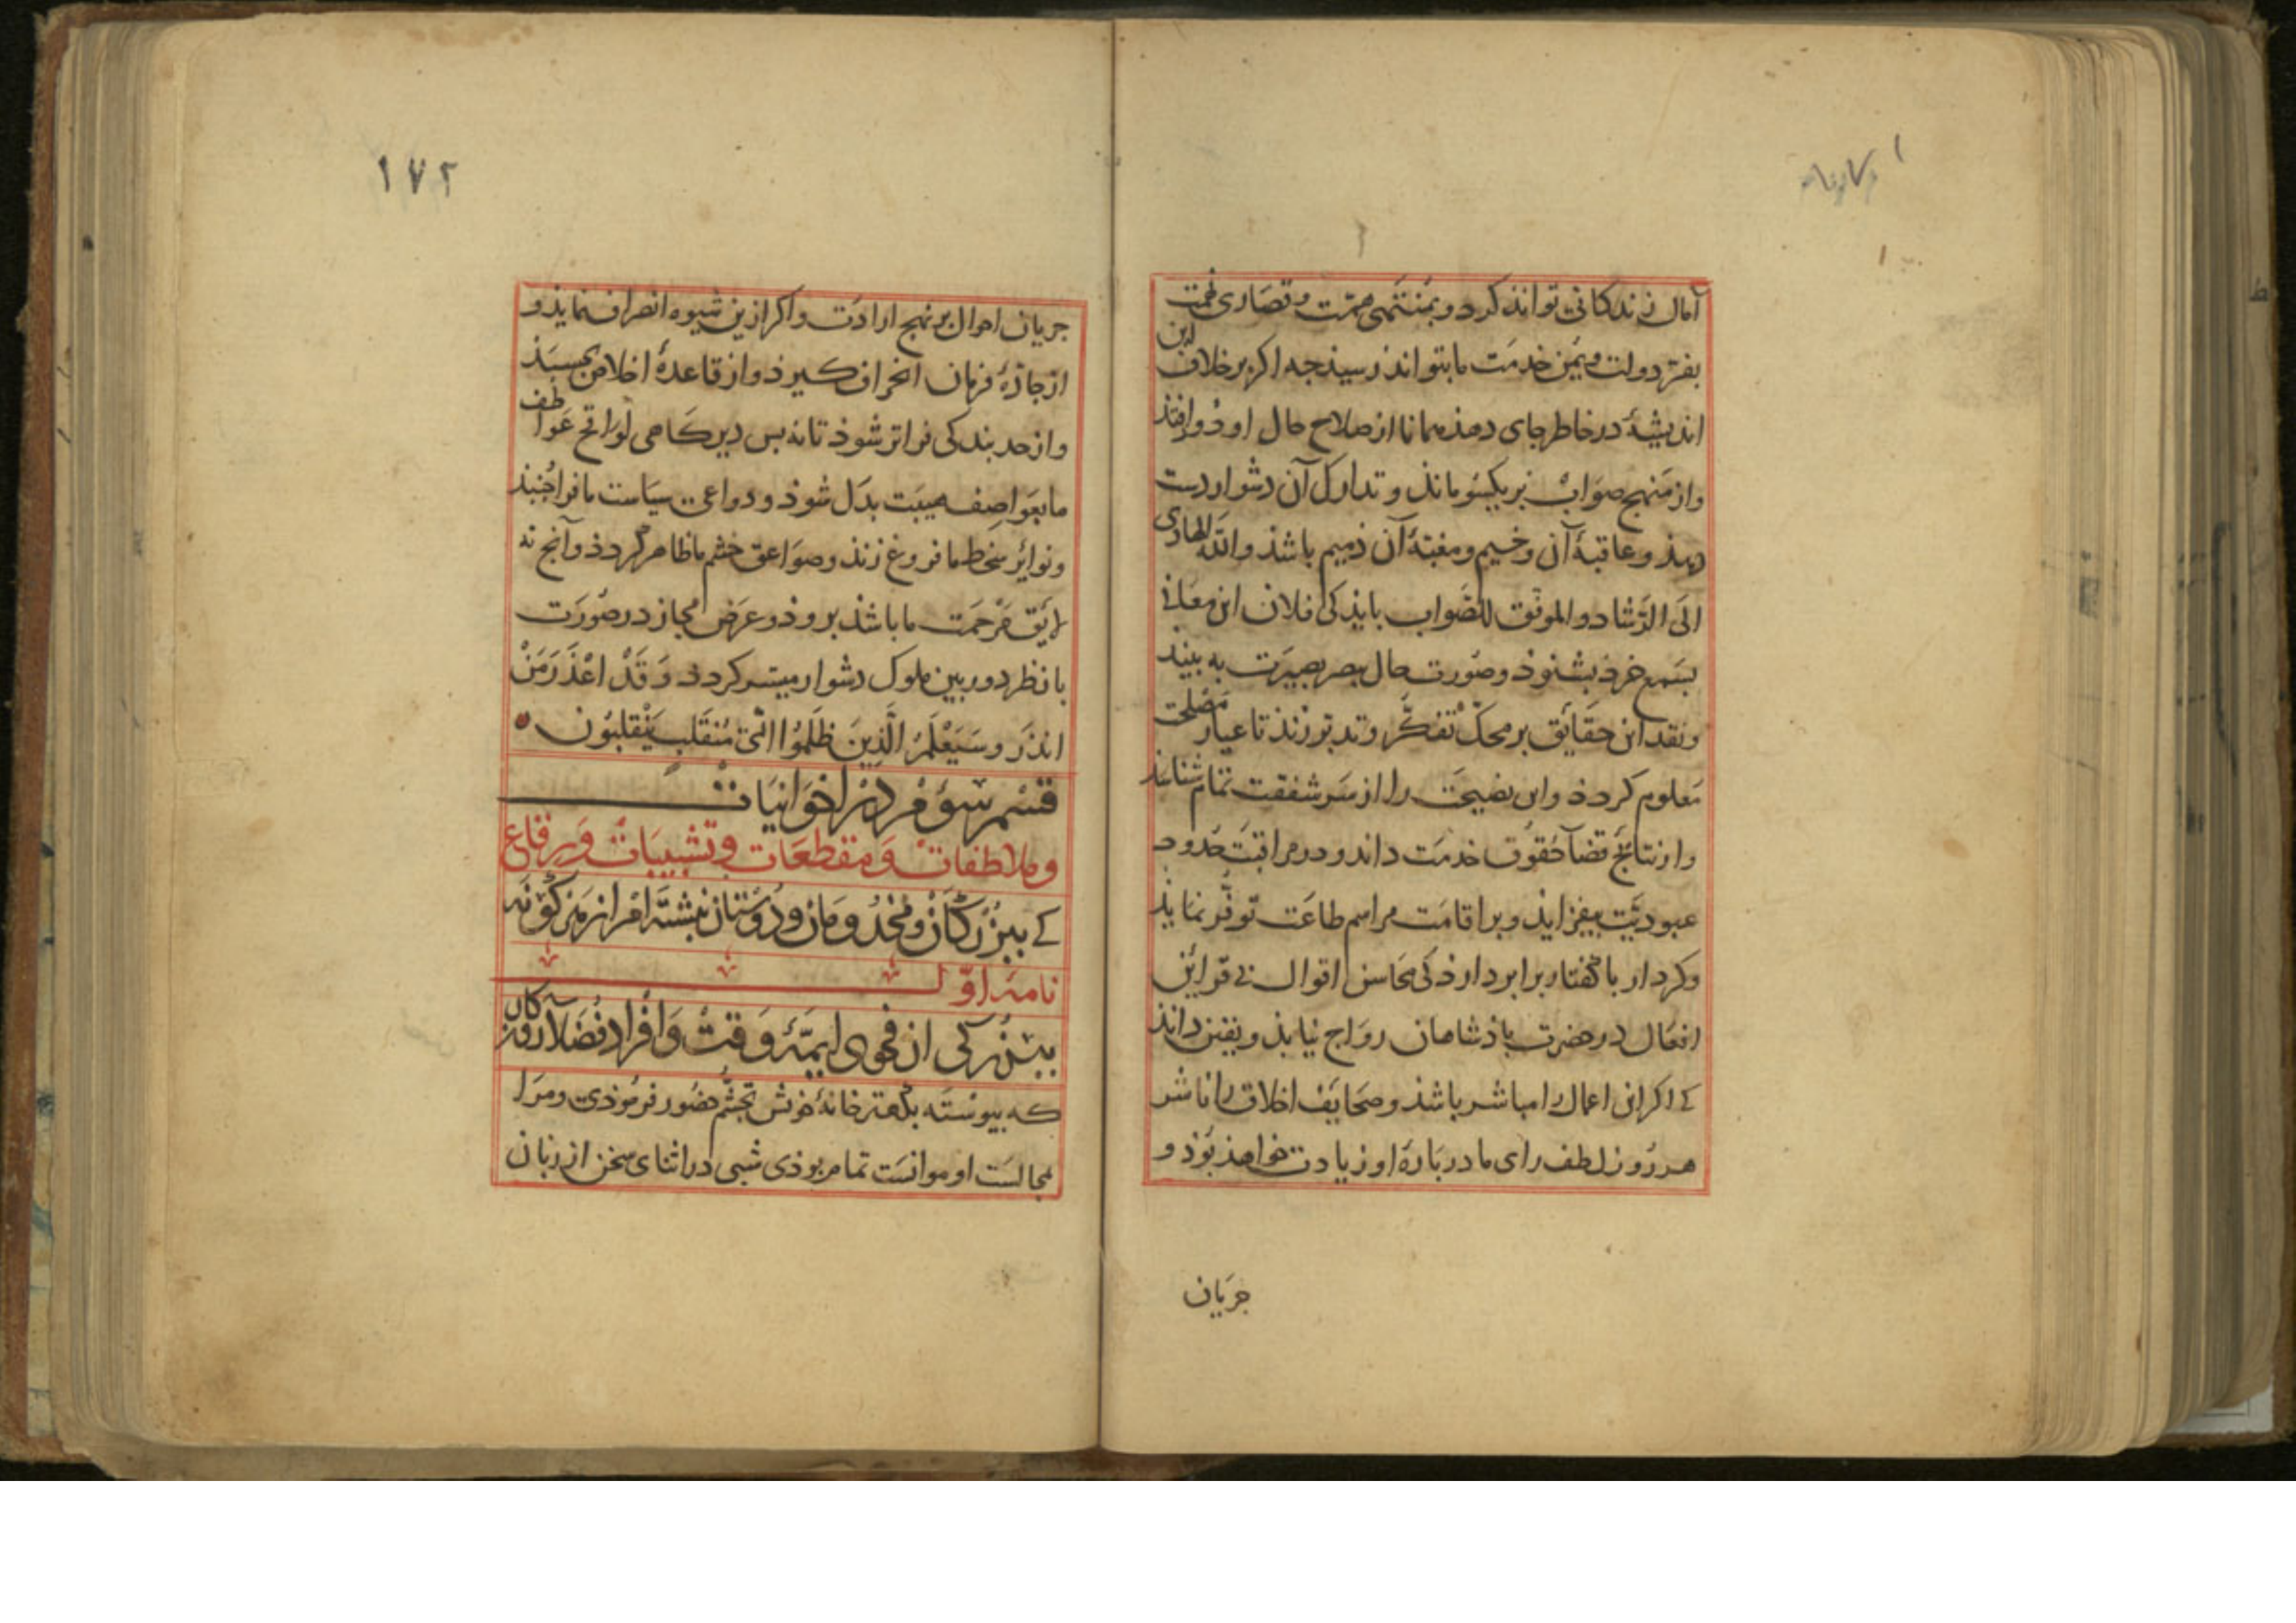 آمال زندکانی تواند کرد و بمنتهی همّت و قصاری نهمت
بفرّ دولت و یمن خدمت ما بتواند رسید جه اکر بر خلاف این
اندیشهٔ در خاطر جای دهد همانا از صلاح حال او دور افتذ
و از منهج صواب بر یکسو ماند و تدارک آن دشوار دست
دهد و عاقبهٔ آن وخیم و مغبّهٔ آن ذمیم باشذ والله الهادی
الی الرّشاد والموفق للصّواب بایذ کی فلان این معانی
بسمع خرذ بشنوذ و صورت حال ببصر بصیرت به بیند
و نقد این حقایق بر محکّ تفکّر و تدبّر زنذ تا عیار مصلحت
معلوم کردذ و این نصیحت را از سر شفقت تمام شناسذ
و از نتایج قضآ حقوق خدمت داند و در مراقبت حدود
عبودیّت بیفزایذ و بر اقامت مراسم طاعت توفّر نمایذ
و کردار با کفتار برابر دارذ کی محاسن اقوال بی قراین
افعال در حضرت پاذشاهان رواج نیابذ و یقین داند
کی اکر این اعمال را مباشر باشذ و صحایف اخلاق را ناشر
هر روز لطف رای ما در بارهٔ او زیادت خواهذ بوذ و
جریان
۱۷۲
جریان احوال بر نهج ارادت و اکر ازین شیوه انصراف نمایذ و
از جاذهٔ فرمان انحراف کیرذ و از قاعدهٔ اخلاص بجسبذ
و از حد بندکی فراتر شوذ تا نه بس دیرکاهی لواقح عواطف
ما بعواصف هیبت بدل شوذ و دواعی سیاست ما فرا جنبذ
و نوایر سخط ما فروغ زند و صواعق خشم ما ظاهر کردذ و آنج نه
لایق مرحمت ما باشذ بروذ و عرض مجاز در صورت
با نظر دوربین ملوک دشوار میسر کردذ وَقَدْ اعْذَرَ مَنْ
انذَرَ وسَيَعْلَمُ الَّذِينَ ظَلَمُوا اىَّ مُنقَلَبٍ يَنْقَلِبُون
قسم سوم در اخوانیات
و ملاطفات و مقطعات و تشبیبات و رقاع
کی ببزرکان و مخدومان و دوستان نبشته ام از هر کونه
نامهٔ اوّل
ببزرکی از فحول ایمّهٔ وقت و افراد فضلآ روزکار
که پیوسته بکلبهٔ خانهٔ خوش تجشّم حضور فرموذی و مرا
مجالست او موانست تمام بوذی شبی در اثنای سخن از زبان